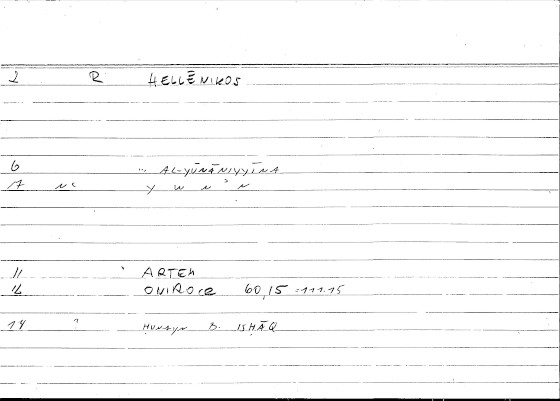 2 R HELLĒNIKOS
6 ... AL-YŪNĀNIYYĪNA
7 nc y w n ʾ n
11 ARTEM
12 ONIROCR 60,15 =111.15
14 ḤUNAYN B. ISḤĀQ